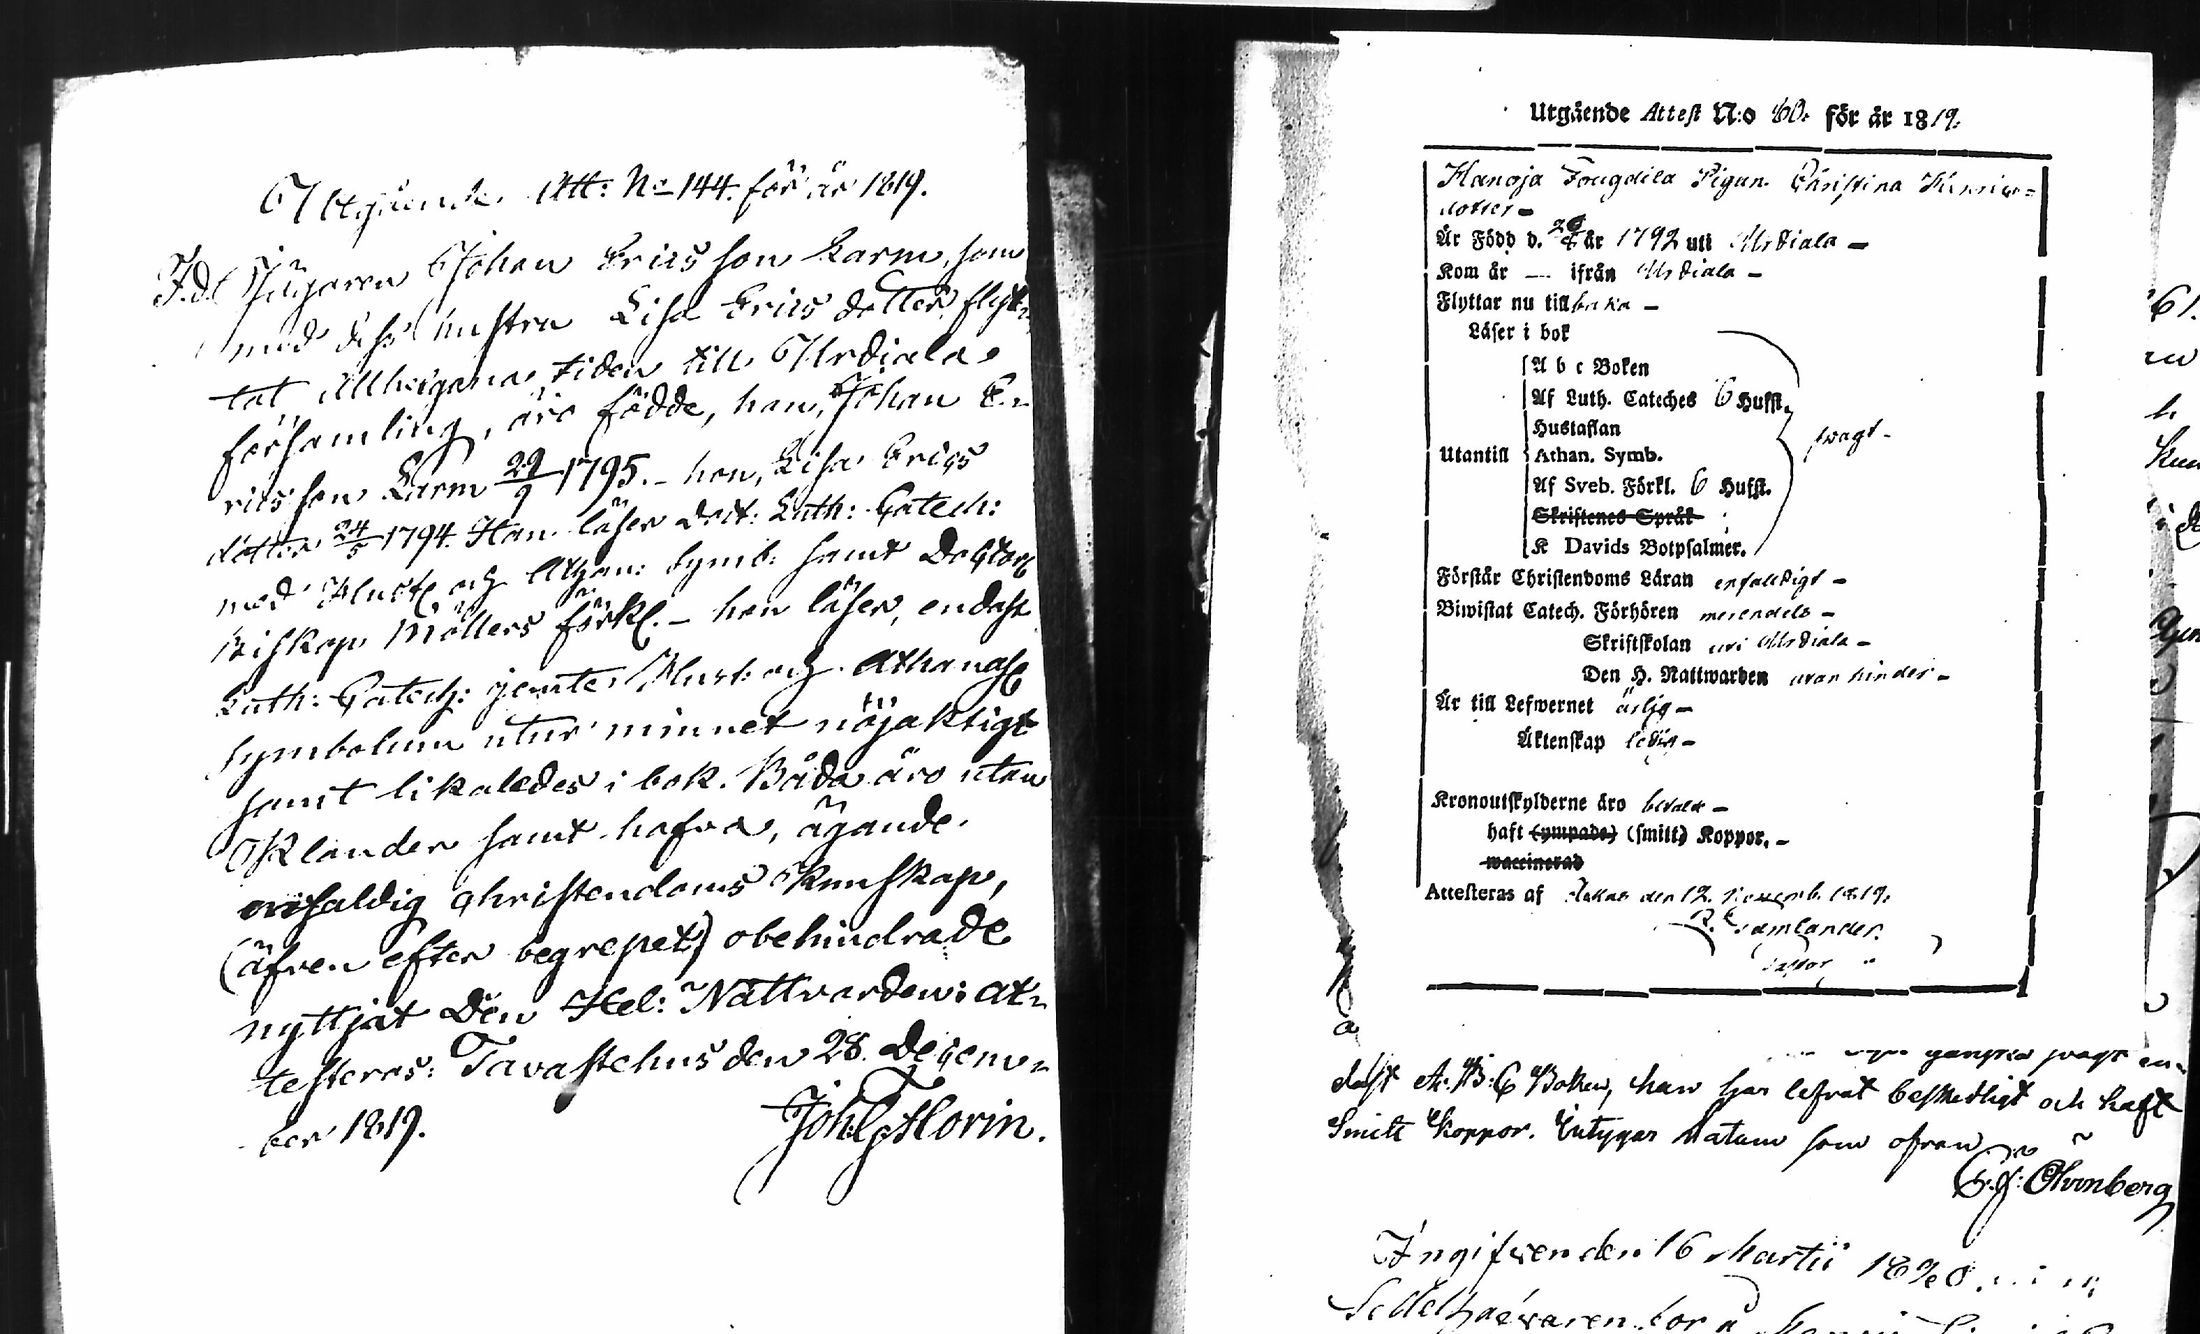 Utgående Att: No 144. för år 1819.
F.d. Jägaren Johan Ericsson Karm, som
med dess hustru Lisa Ericsdotter flyt-
tat Allhelgona tiden till Urdiala
församling, äro födde, han, Johan E-
ricsson Larm 29/9 1795. – hon, Lisa Erics
dotter 24/5 1794. Han läser Doct: Luth: Catech:
med Hust. och Athan: Symb: samt Doctor
Biskop Möllers förkl. – hon läser, endast
Luth: Catech: jemte Hust: och Athanas.
Symbolum utur minnet nöjaktigt
samt likaledes i bok. Båda äro utan
Klander samt hafva, ägande
enfaldig Christendoms Kunskap,
(äfven efter begrepet) obehindrade
nyttjat Den Hel: Nattvarden: At-
testeras: Tavastehus den 28. Decem-
ber 1819.
Joh: G Florin.
Utgående Attest N:o 60. för år 1819.
Hanoja Fougdila Pigan Christina Henrics=
dotter –
År Född d. år 1792 uti Urdiala –
Kom år — ifrån Urdiala –
Flyttar nu tillbaka –
Läser i bok
A b c Boken
Af Luth. Cateches 6 Hufst.
Hustaflan
Utantill Athan. Symb.
svagt –
Af Sveb. Förkl. 6 Hufst.
Skriftenes Språk
K Davids Botpsalmer.
Förstår Christendoms Läran enfaldigt –
Biwistat Catech. Förhören merendels –
Skriftskolan uti Urdiala –
Den H. Nattwarden utan hinder –
Är till Lefwernet ärlig –
Äktenskap ledig –
Kronoutskylderne äro betalt –
haft (ympade) (smitt) Koppor. –
waccinerad
Attesteras af Akas den 12. Novemb. 1819.
Pastor
ganska svagt en-
dast A: B: C Boken, har lefvat beskedligt och haft
Smitt Koppor. Intygar Datum som ofvan
Ingifven den 16 Martii 1820